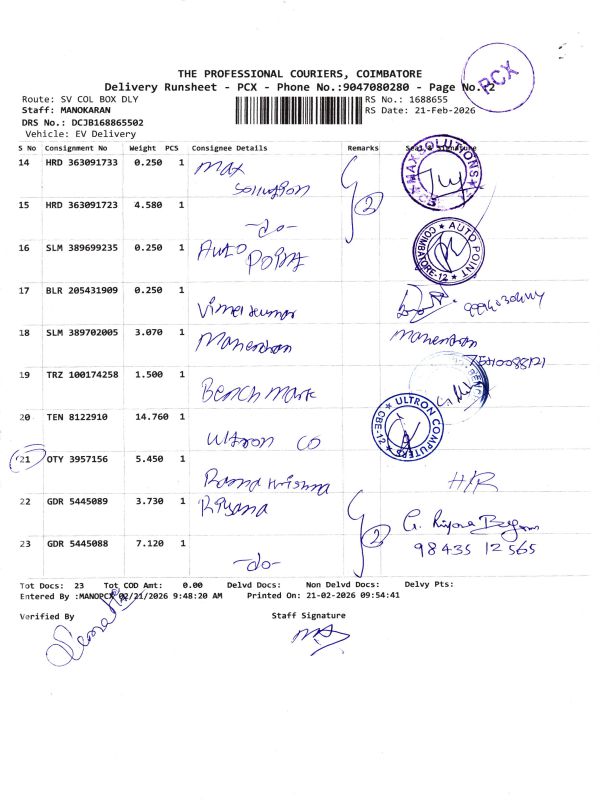 THE PROFESSIONAL COURIERS, COIMBATORE
Delivery Runsheet - PCX - Phone No.:9047080280 - Page No. 2
PCX
Route: SV COL BOX DLY
RS No.: 1688655
Staff: MANOKARAN
RS Date: 21-Feb-2026
DRS No.: DCJB168865502
Vehicle: EV Delivery
S No Consignment No Weight PCS Consignee Details Remarks Seal & Signature
14 HRD 363091733 0.250 1 Max Solution MAX SOLUTIONS
15 HRD 363091723 4.580 1 -do- 2
16 SLM 389699235 0.250 1 Auto Point AUTO POINT COIMBATORE-12
17 BLR 205431909 0.250 1 Vimel kumar
18 SLM 389702005 3.070 1 Mahendran Mahendran
19 TRZ 100174258 1.500 1 Bench mark
20 TEN 8122910 14.760 1 Ultron CO ULTRON COMPUTERS CBE-12
21 OTY 3957156 5.450 1 Rama Krishna H/R
22 GDR 5445089 3.730 1 Riyana G. Riyana Begam
23 GDR 5445088 7.120 1 -do- 2 98435 12565
Tot Docs: 23 Tot COD Amt: 0.00 Delvd Docs: Non Delvd Docs: Delvy Pts:
Entered By :MANOPCX 02/21/2026 9:48:20 AM Printed On: 21-02-2026 09:54:41
Verified By Staff Signature